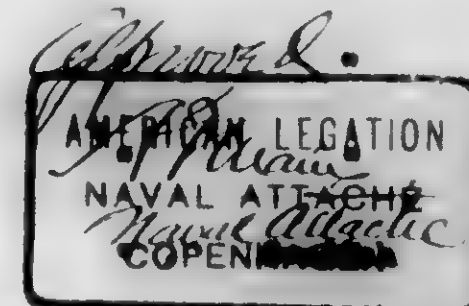 Approved.
AMERICAN LEGATION
NAVAL ATTACHE
Naval Attache
COPEN